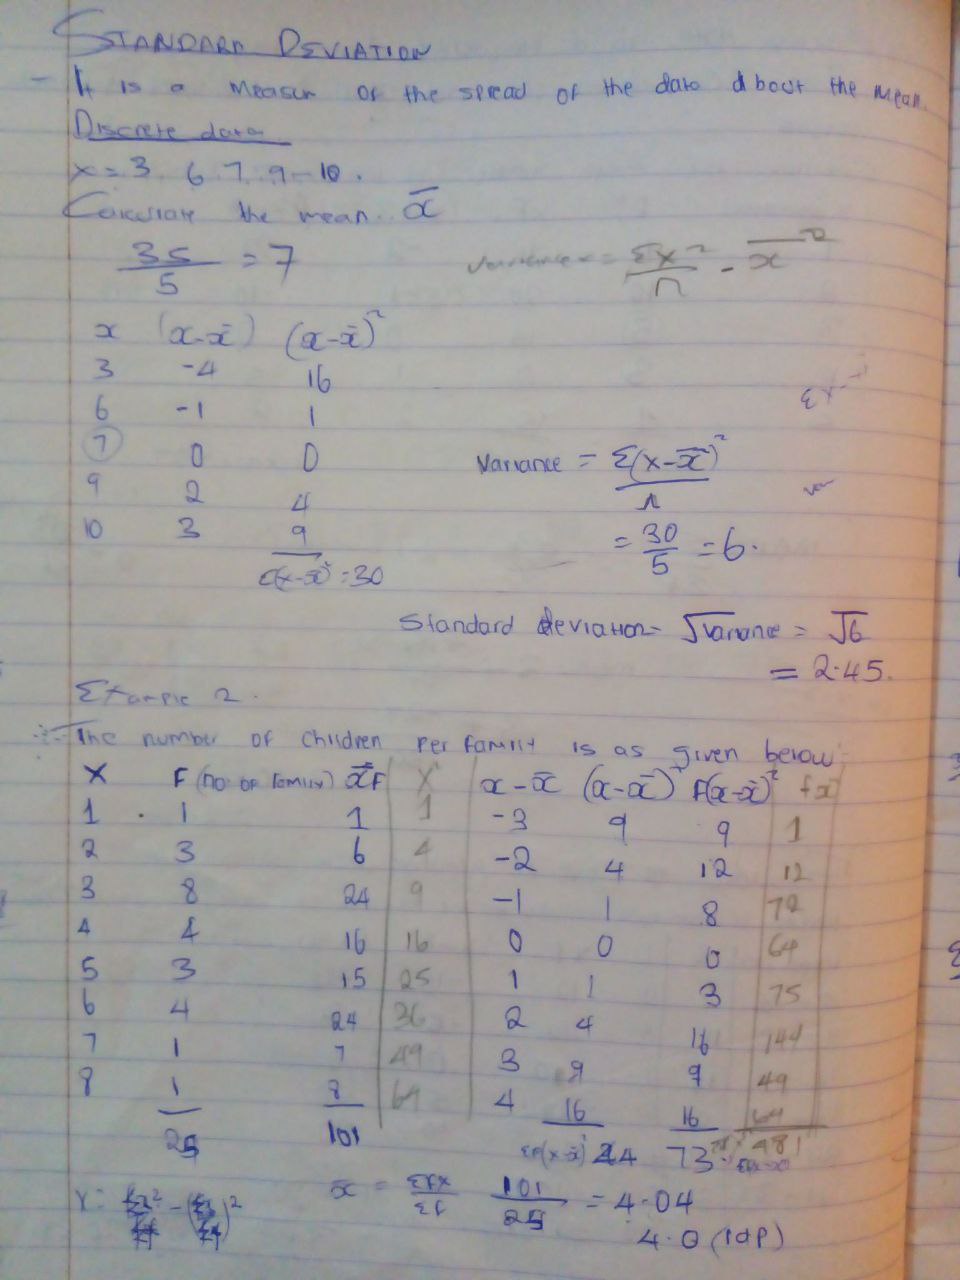 STANDARD DEVIATION
- It is a measur of the spread of the data about the mean.
Discrete data
x = 3 6 7 9 - 10.
Calculate the mean x̄
35/5 = 7
Variance = Σx²/n - x̄²
x (x-x̄) (x-x̄)²
3 -4 16
6 -1 1
7 0 0
9 2 4
10 3 9
Σ(x-x̄)² = 30
Variance = Σ(x-x̄)²/n
= 30/5 = 6.
Standard deviation = √variance = √6
= 2.45.
Example 2.
The number of children per family is as given below
X F (no of family) x̄F X² x-x̄ (x-x̄)² F(x-x̄)² fx²
1 1 1 1 -3 9 9 1
2 3 6 4 -2 4 12 12
3 8 24 9 -1 1 8 72
4 4 16 16 0 0 0 64
5 3 15 25 1 1 3 75
6 4 24 36 2 4 16 144
7 1 7 49 3 9 9 49
8 1 8 64 4 16 16 64
25 101 44 73 481
x̄ = Σfx/Σf 101/25 = 4.04
4.0 (1dp)